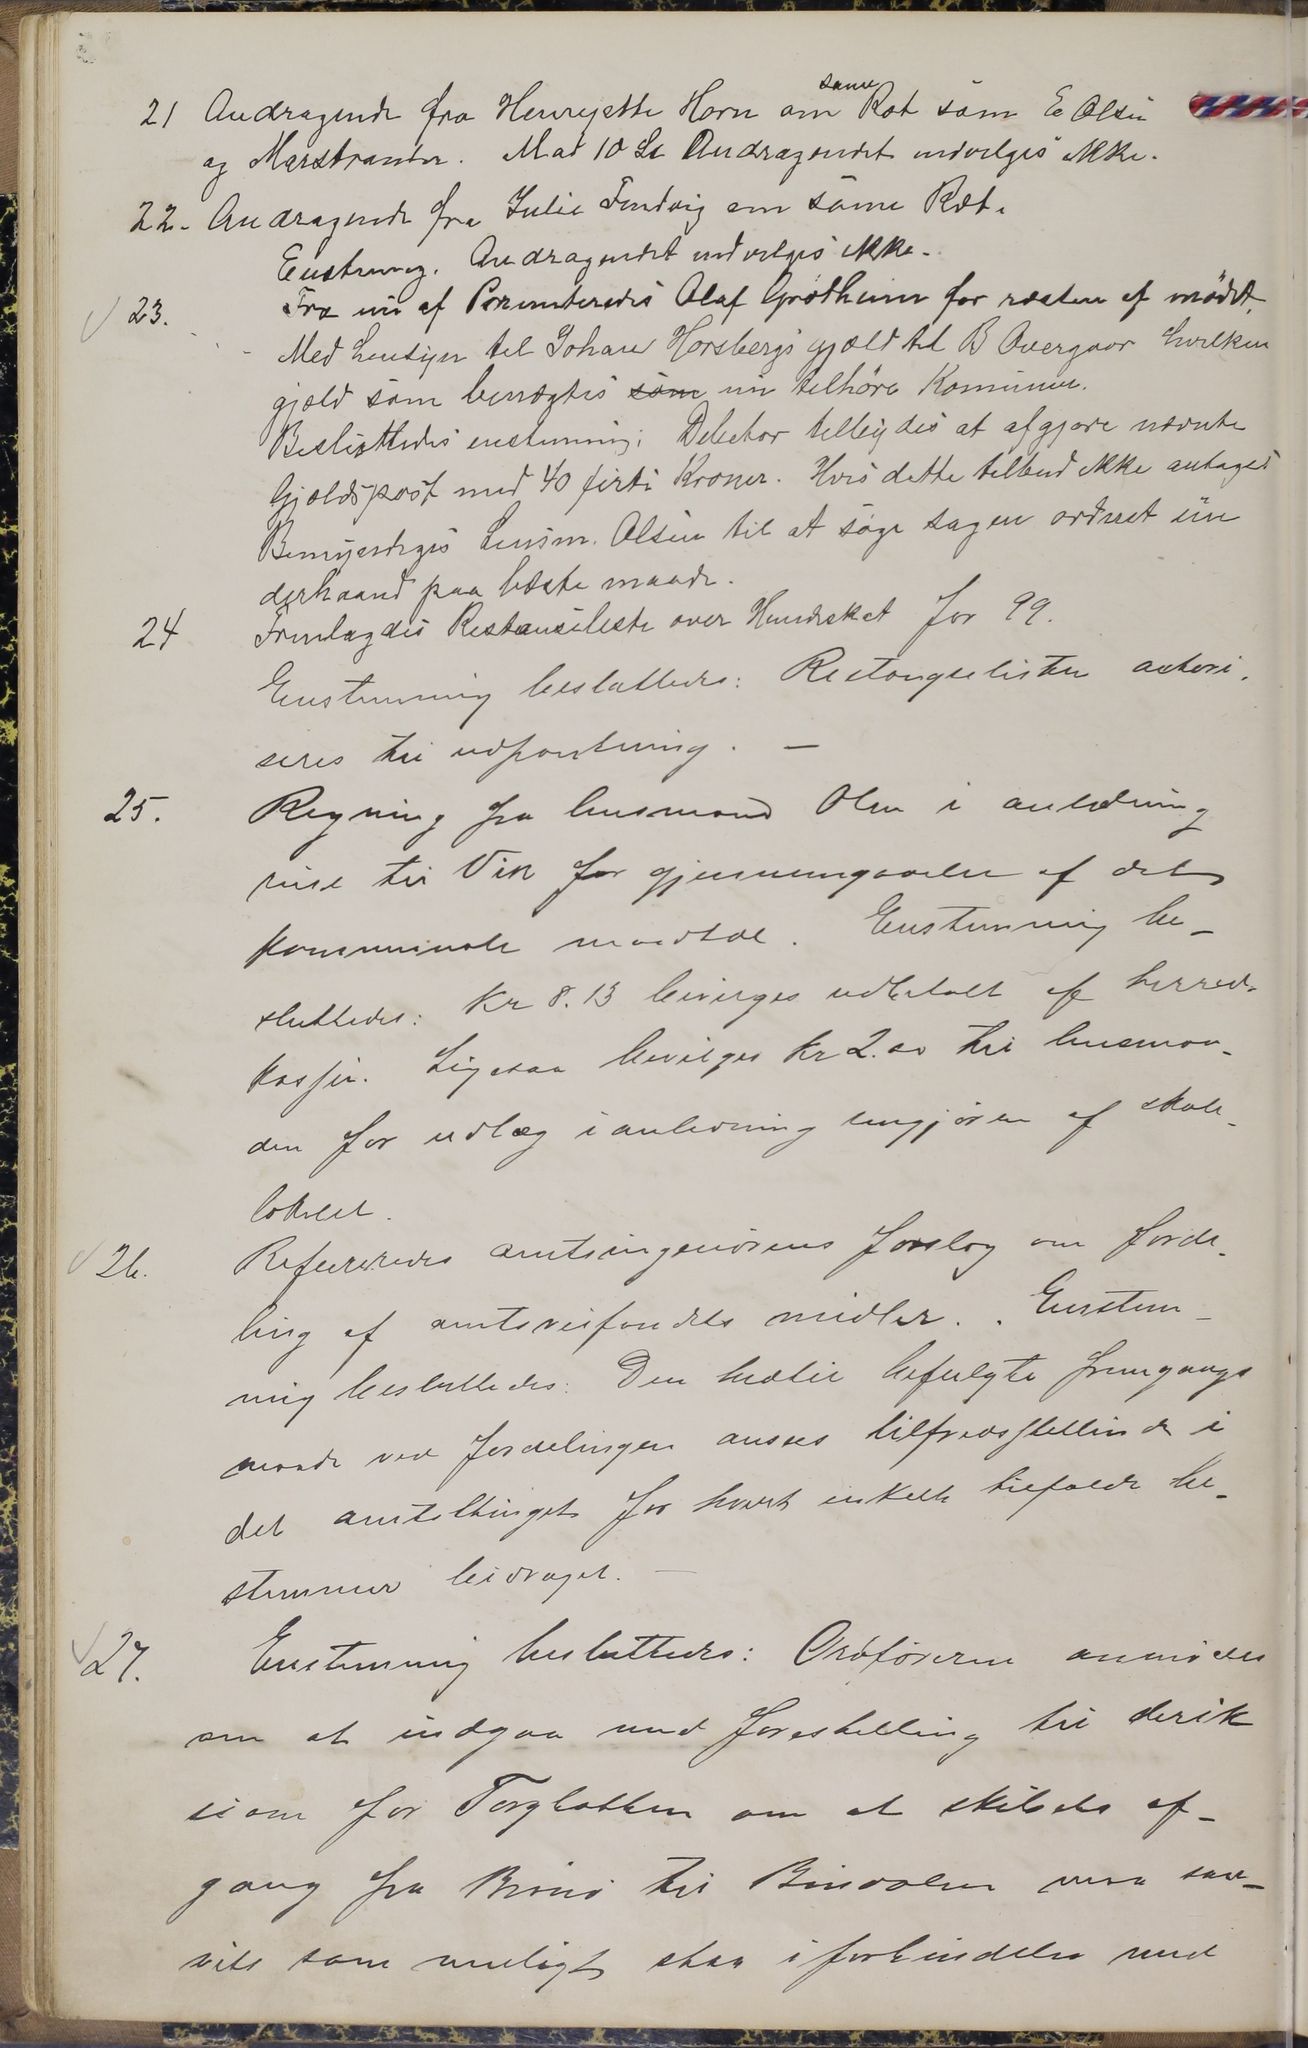 21 Andragende fra Henryette Horn om same Ret som E Olsen
og Marstrander. Mod 10 St Andragendet indvilges ikke.
22. Andragende fra Julie Fondvig om same Ret.
Enstemig. Andragendet indvilges ikke.
23. Fra nu af Permiteredes Olaf Grødheim for resten af mödet.
Med hensyn til Johan Horsbergs gjæld til B Overgaar hvilken
gjæld som benægtes som nu tilhöre Komunen.
Beslöttedes enstemmig: Debetor tilbydes at afgjøre nævnte
Gjældspost med 40 förti Kroner. Hvis dette tilbud ikke antages
Bemyndiges Lensm. Olsen til at söge sagen ordnet ün
derhaand paa beste maade.
24 Fremlagdes Restanseliste over Hundeskat for 99.
Enstemmig besluttedes: Restanselisten autori-
seres til udpantning. —
25. Regning fra lensmand Olsen i anledning
reise til Vik for gjennemgaaelse af det
kommunale mandtal. Enstemmig be-
sluttedes: Kr 8.13 bevilges udbetalt af herreds-
kassen. Ligesaa bevilges kr 2.00 til lensman-
den for udlæg i anledning rengjøren af skole-
lokalet.
26. Refereredes amtsingeniørens forslag om forde-
ling af amtsveifondets midler. Enstem-
mig besluttedes: Den hidtil befulgte fremgangs
maade ved fordelingen ansees tilfredsstillende i
det amtstinget for hvert enkelt tilfælde be-
stemmer bidraget. —
27. Enstemmig besluttedes: Ordføreren anmodes
om at indgaa med forestilling til derik
sion for Torghatten om at skibets af-
gang fra Brönö til Bindalen maa saa-
vidt som muligt staa i forbindelse med